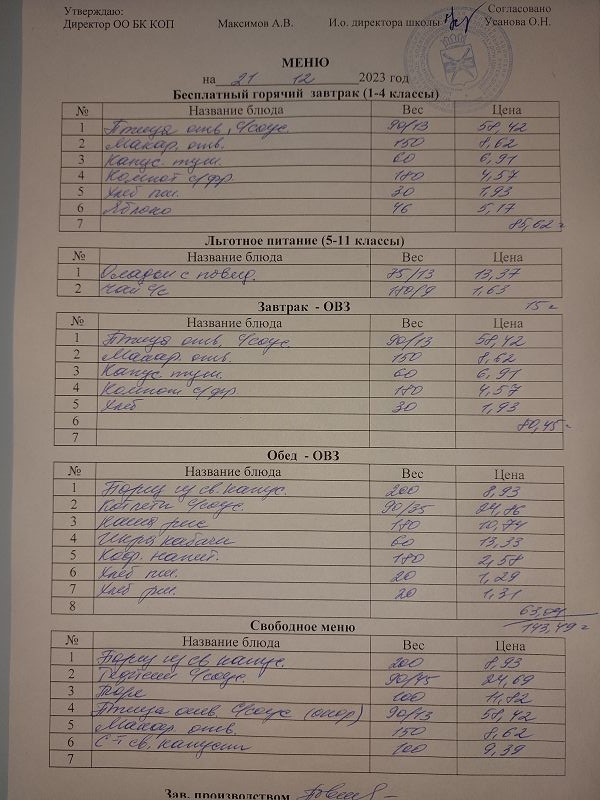 Утверждаю: Согласовано
Директор ОО БК КОП Максимов А.В. И.о. директора школы Усанова О.Н.
МЕНЮ
на 21 12 2023 год
Бесплатный горячий завтрак (1-4 классы)
№ Название блюда Вес Цена
1 Птица отв, с/соус. 90/13 58,42
2 Макар. отв. 150 8,62
3 Капус. туш. 60 6,91
4 Компот с/фр 180 4,57
5 Хлеб пш. 30 1,93
6 Яблоко 46 5,17
7 85,62
Льготное питание (5-11 классы)
№ Название блюда Вес Цена
1 Оладьи с повид. 75/13 13,37
2 Чай с/с 180/9 1,63
15
Завтрак - ОВЗ
№ Название блюда Вес Цена
1 Птица отв, с/соус 90/13 58,42
2 Макар. отв. 150 8,62
3 Капус. туш. 60 6,91
4 Компот с/фр 180 4,57
5 Хлеб 30 1,93
6 80,45
7
Обед - ОВЗ
№ Название блюда Вес Цена
1 Борщ из св. капус. 200 8,93
2 Котлеты с/соус. 90/35 24,86
3 Каша рис 180 10,74
4 Икра кабачк 60 13,33
5 Кофр. напит. 180 2,58
6 Хлеб пш. 20 1,29
7 Хлеб рж. 20 1,31
8 63,04
143,49
Свободное меню
№ Название блюда Вес Цена
1 Борщ из св капус. 200 8,93
2 с/соус. 24,69
3 Пюре 100 11,82
4 Птица отв. с/соус 90/13 58,42
5 Макар. отв. 150 8,62
6 С-т св. капусты 100 9,39
7
Зав. производством